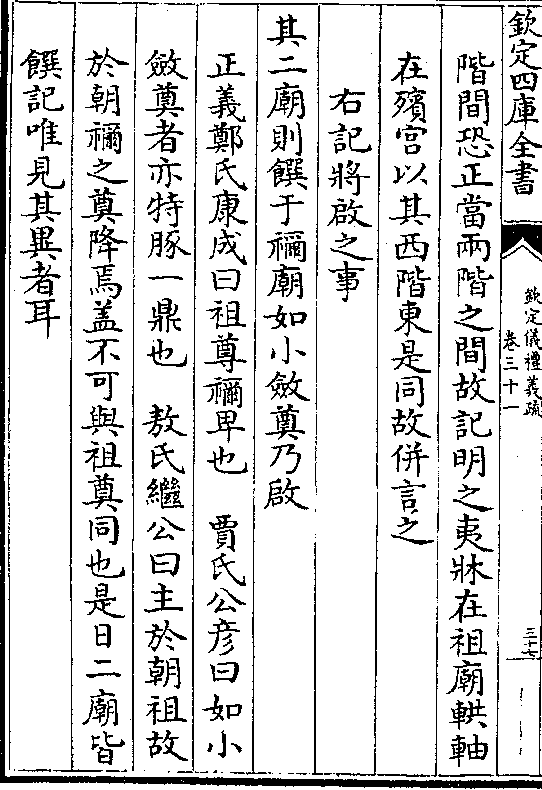 欽定四庫全書
欽定儀禮義疏
卷三十一
三十七
階間恐正當兩階之間故記明之夷牀在祖廟輁軸
在殯宮以其西階東是同故併言之
右記將啟之事
其二廟則饌于禰廟如小斂奠乃啟
正義鄭氏康成曰祖尊禰卑也 賈氏公彦曰如小
斂奠者亦特豚一鼎也 敖氏繼公曰主於朝祖故
於朝禰之奠降焉盖不可與祖奠同也是日二廟皆
饌記唯見其異者耳